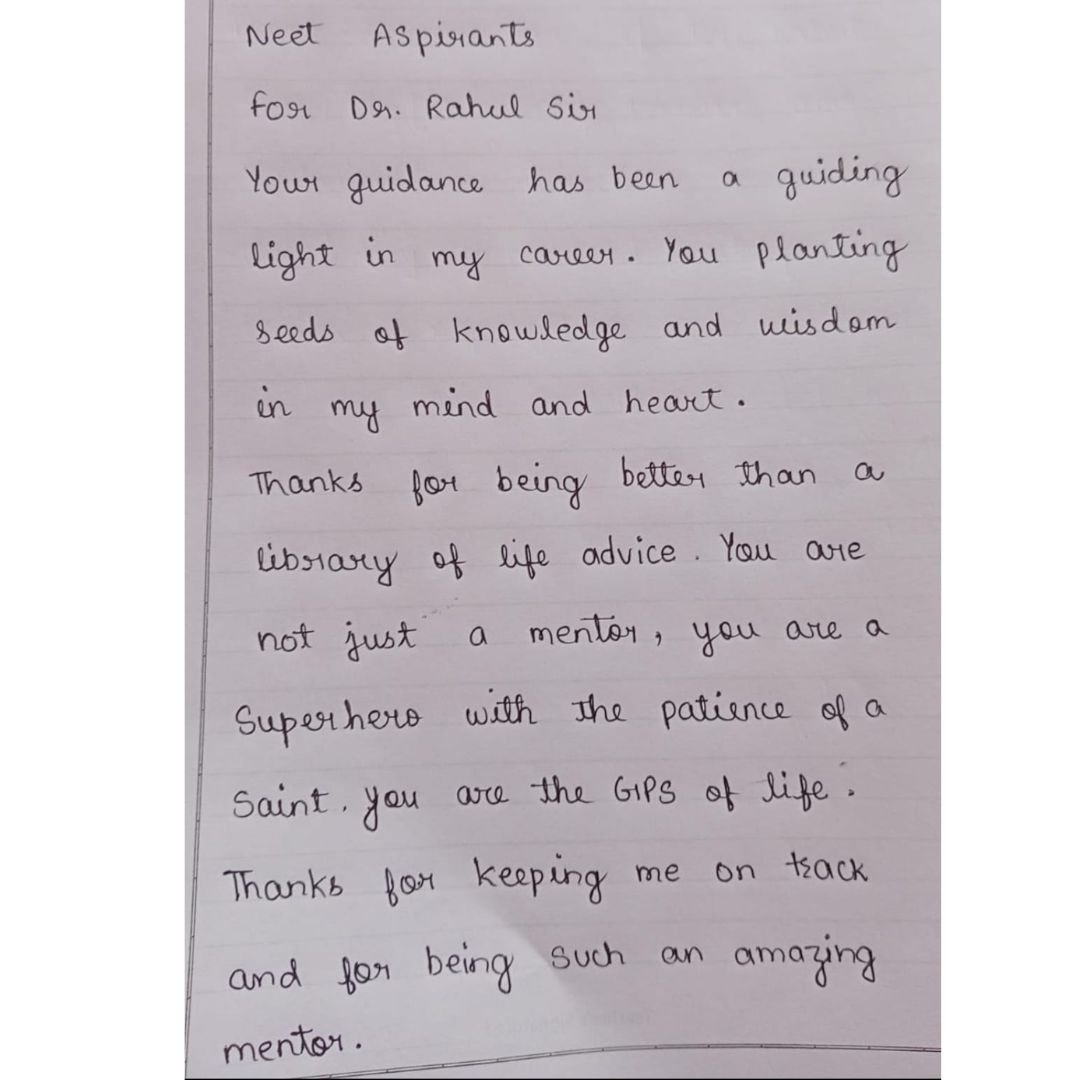 Neet Aspirants
for Dr. Rahul Sir
Your guidance has been a guiding
light in my career. You planting
seeds of knowledge and wisdom
in my mind and heart.
Thanks for being better than a
library of life advice. You are
not just a mentor, you are a
Superhero with the patience of a
Saint. you are the GPS of life.
Thanks for keeping me on track
and for being such an amazing
mentor.